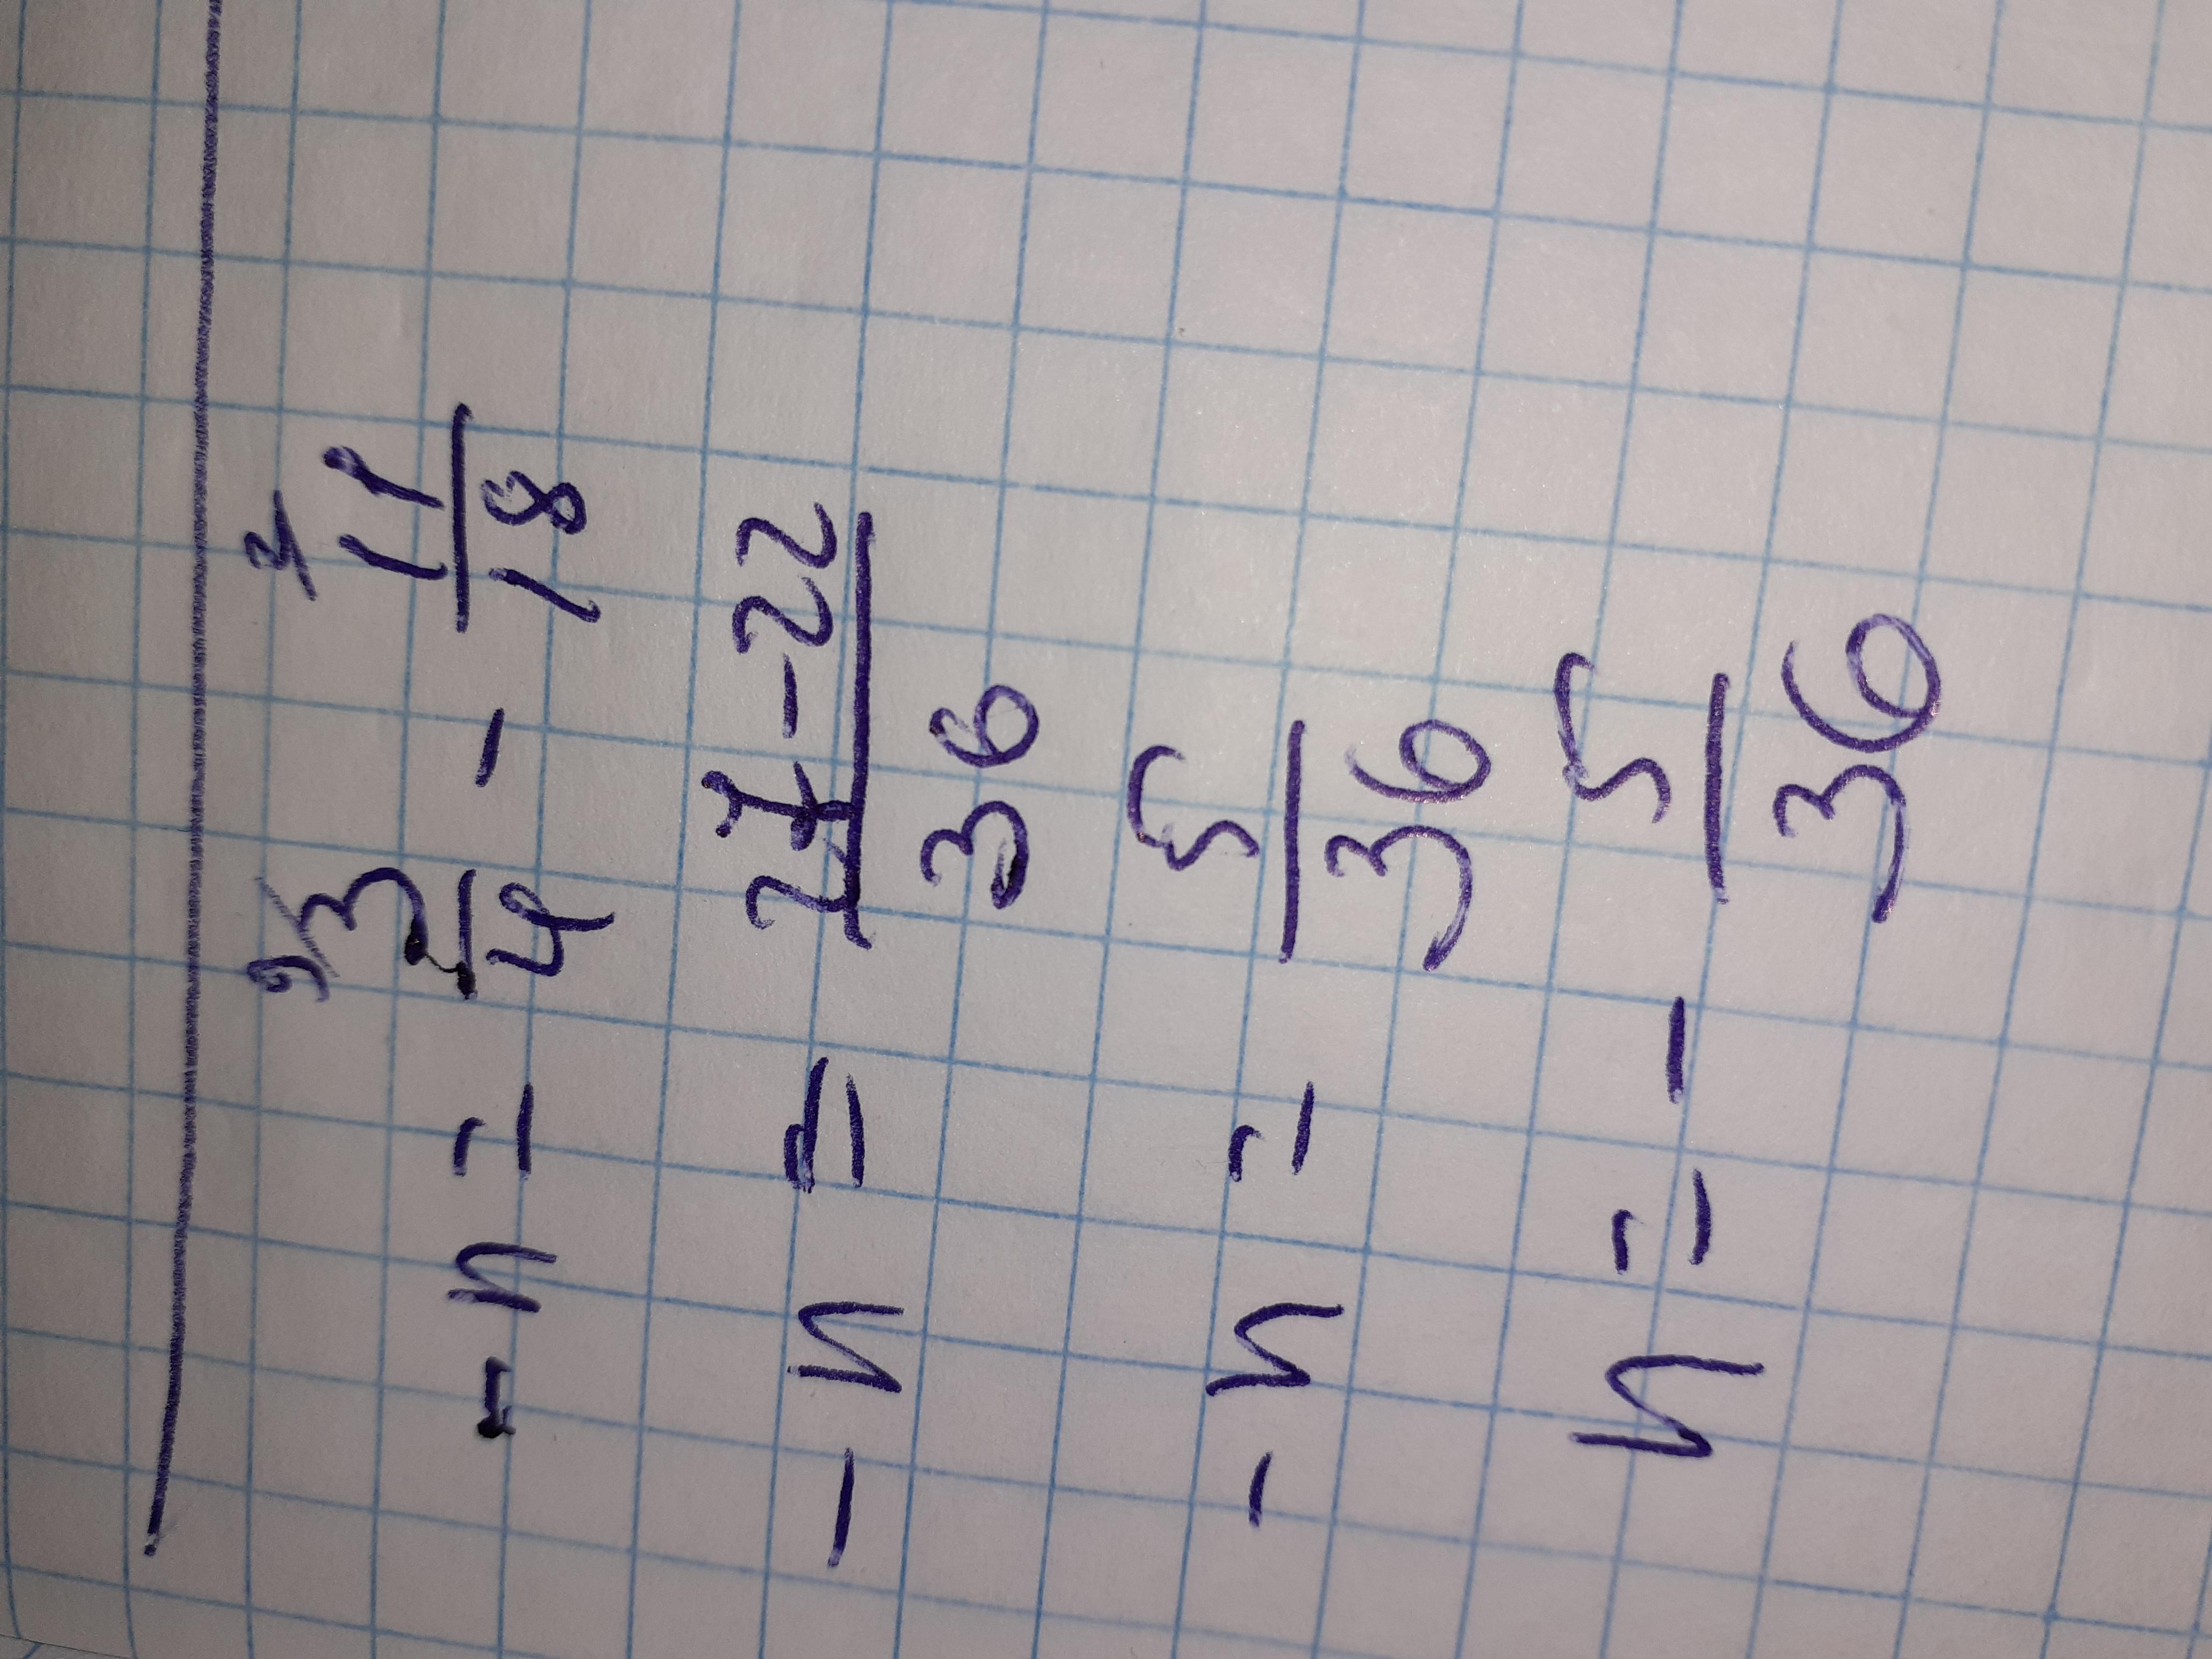 -n = 9/ 3/4 - 11/18
-n = 27-22/36
-n = 5/36
n = - 5/36